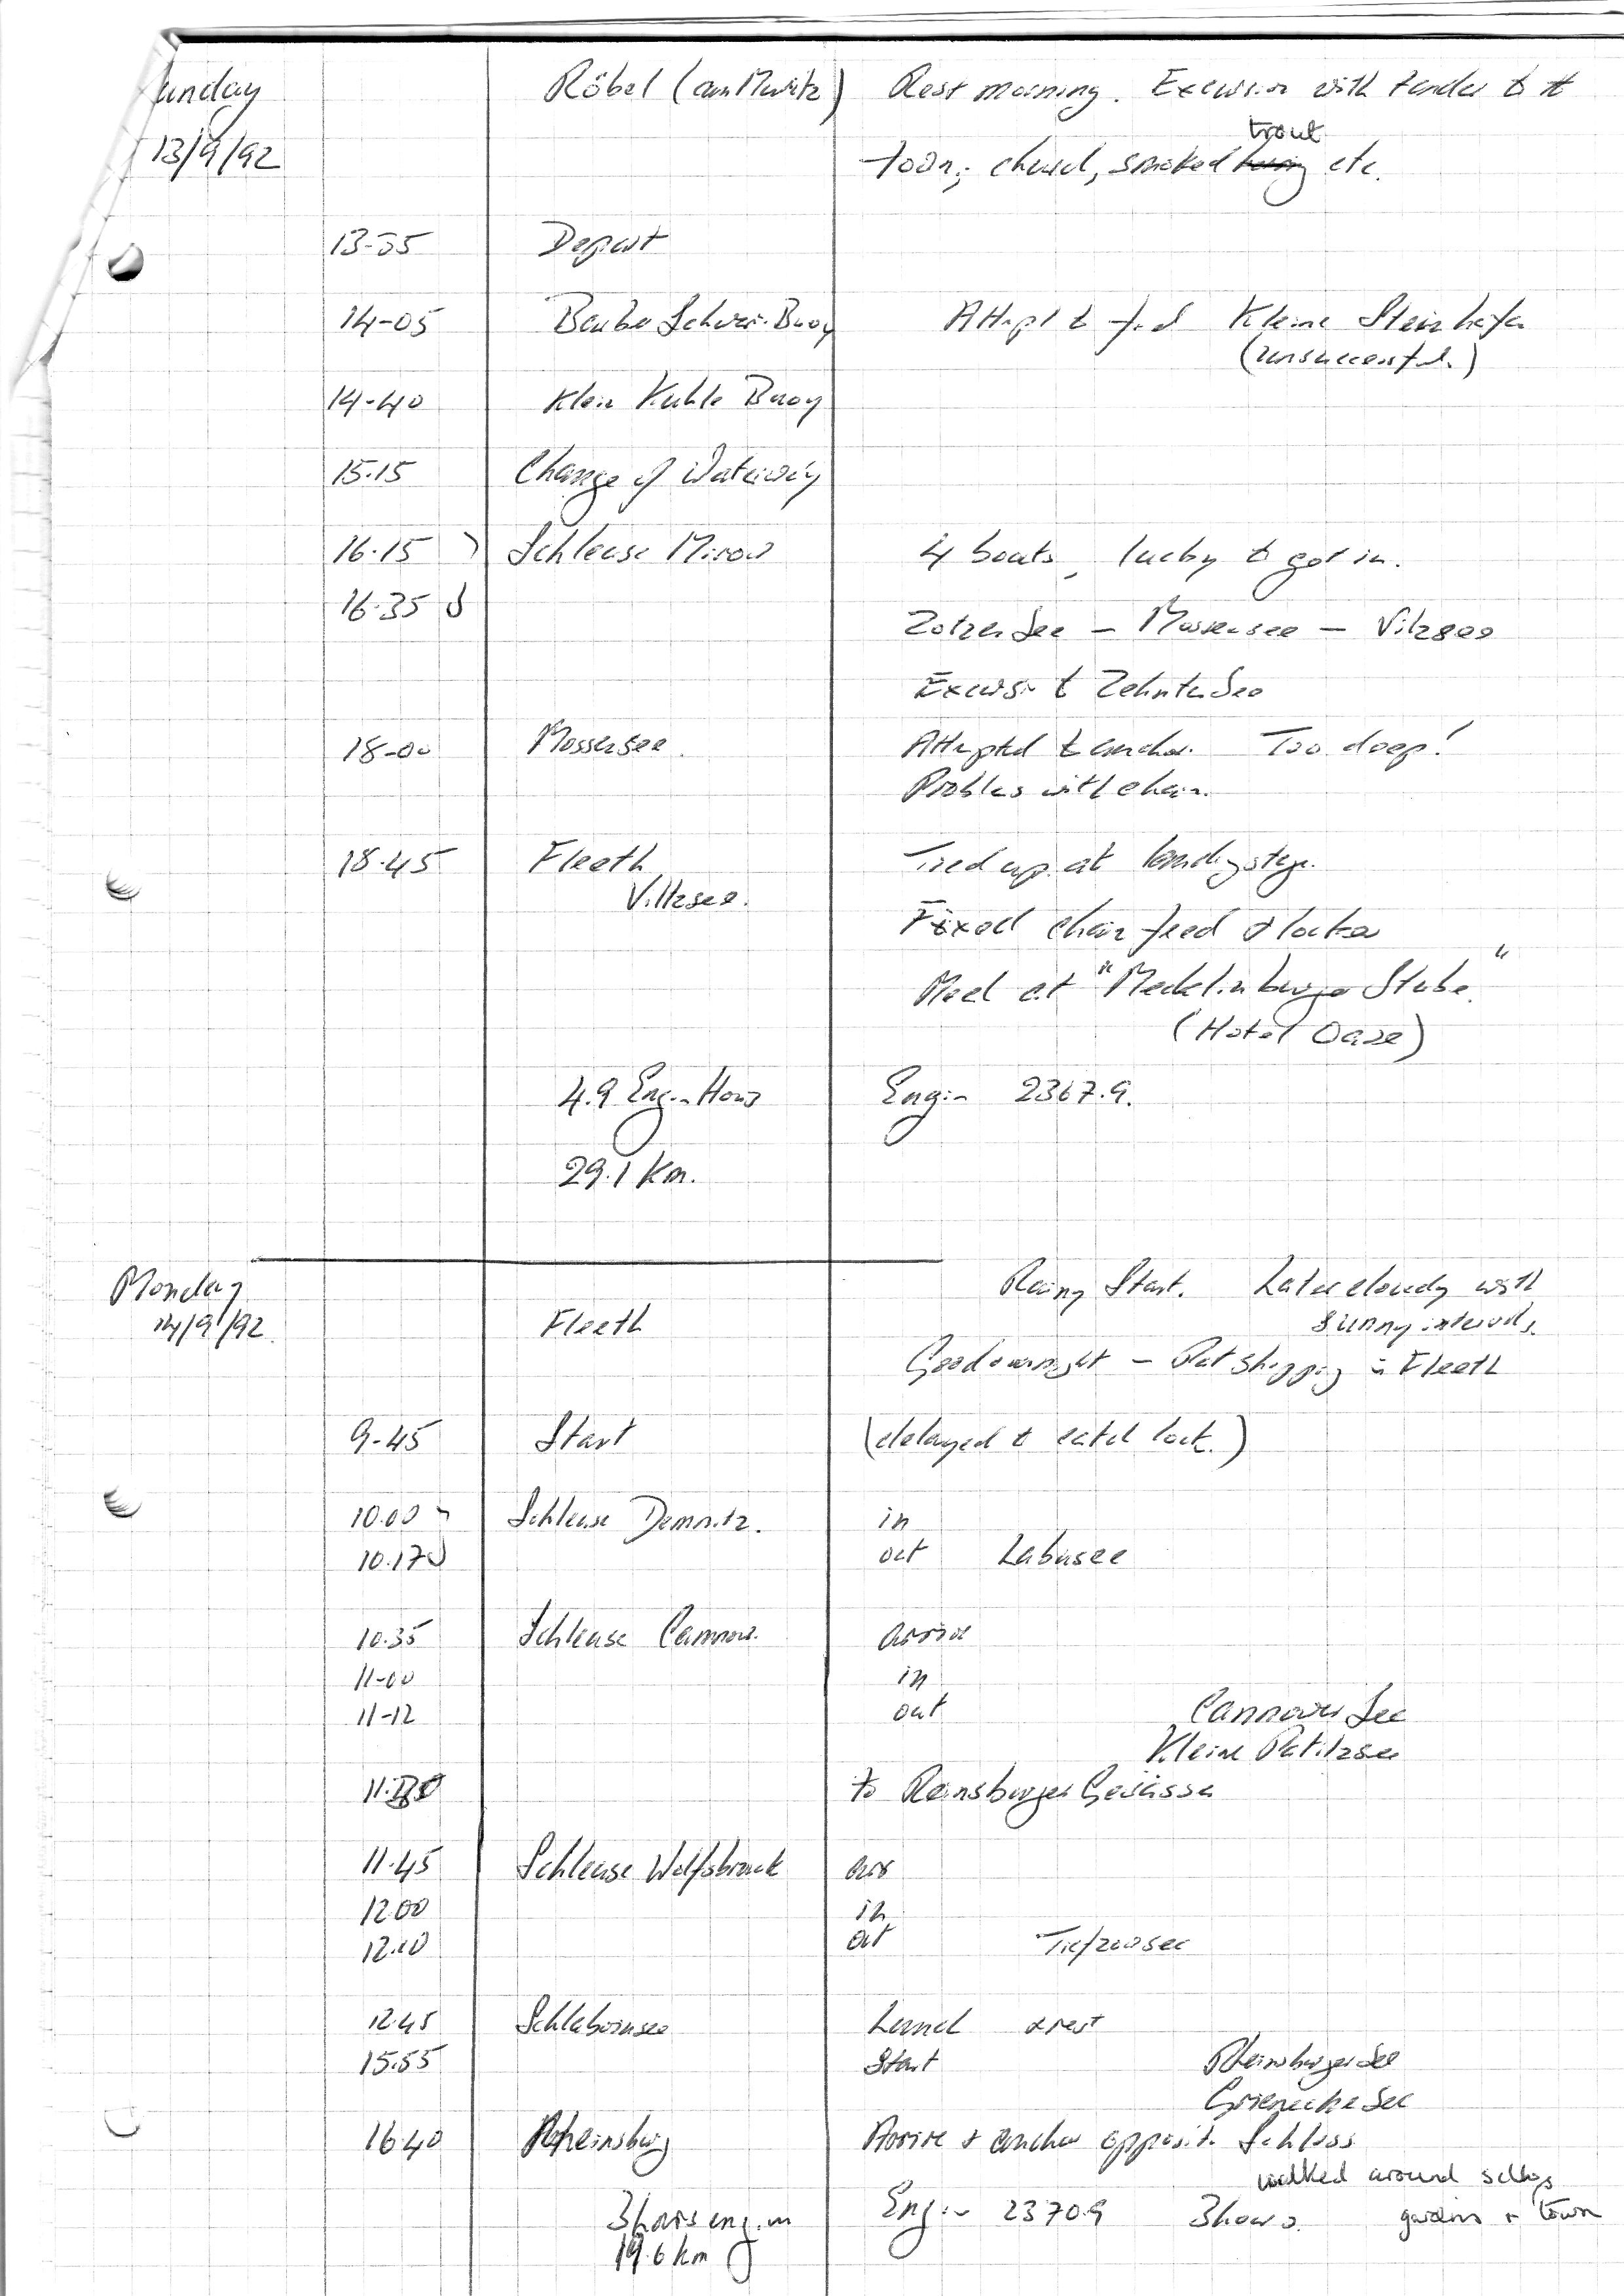 unday Röbel (am Müritz) Rest morning. Excursion with tender to the
13/9/92 trout
town; church, smoked etc.
13-55 Depart
14-05 Buoy Attempt to find Kleine Steinhafen
(unsuccessful.)
14-40 Klein Kuhle Buoy
15.15 Change of Waterway
16.15 Schleuse Mirow 4 boats, lucky to get in.
16.35
Zotzensee — Mossensee — Vilzsee
Excursion to Zehntensee
18-00 Mossensee. Attempted to anchor. Too deep!
Problems with chain.
18.45 Fleeth Tied up at landing stage.
Viltzsee.
Fixed chain feed & locker
Meal at "Mecklinburger Stube."
(Hotel Oase)
4.9 Engine Hours Engine 2367.9.
29.1 km.
Monday Rainy Start. Later cloudy with
14/9/92 Fleeth sunny intervals.
Good overnight — shopping in Fleeth
9-45 Start (delayed to catch lock.)
10.00 Schleuse Demnitz. in
10.17 out Labussee
10.35 Schleuse Cannow. arrive
11-00 in
11-12 out Cannower See
Kleine Patitzsee
to Reinsburger Gewässer
11.45 Schleuse Wolfsbruck arr
12.00 in
12.10 out Tietzowsee
12.45 Schlabornsee Lunch & rest
15.55 Start Rheinsberger See
Grienecke See
16.40 Rheinsberg Arrive & anchor opposite Schloss
walked around schloss
3 hours engine Engine 2370.9 3 hours. gardens + town
19.6 km